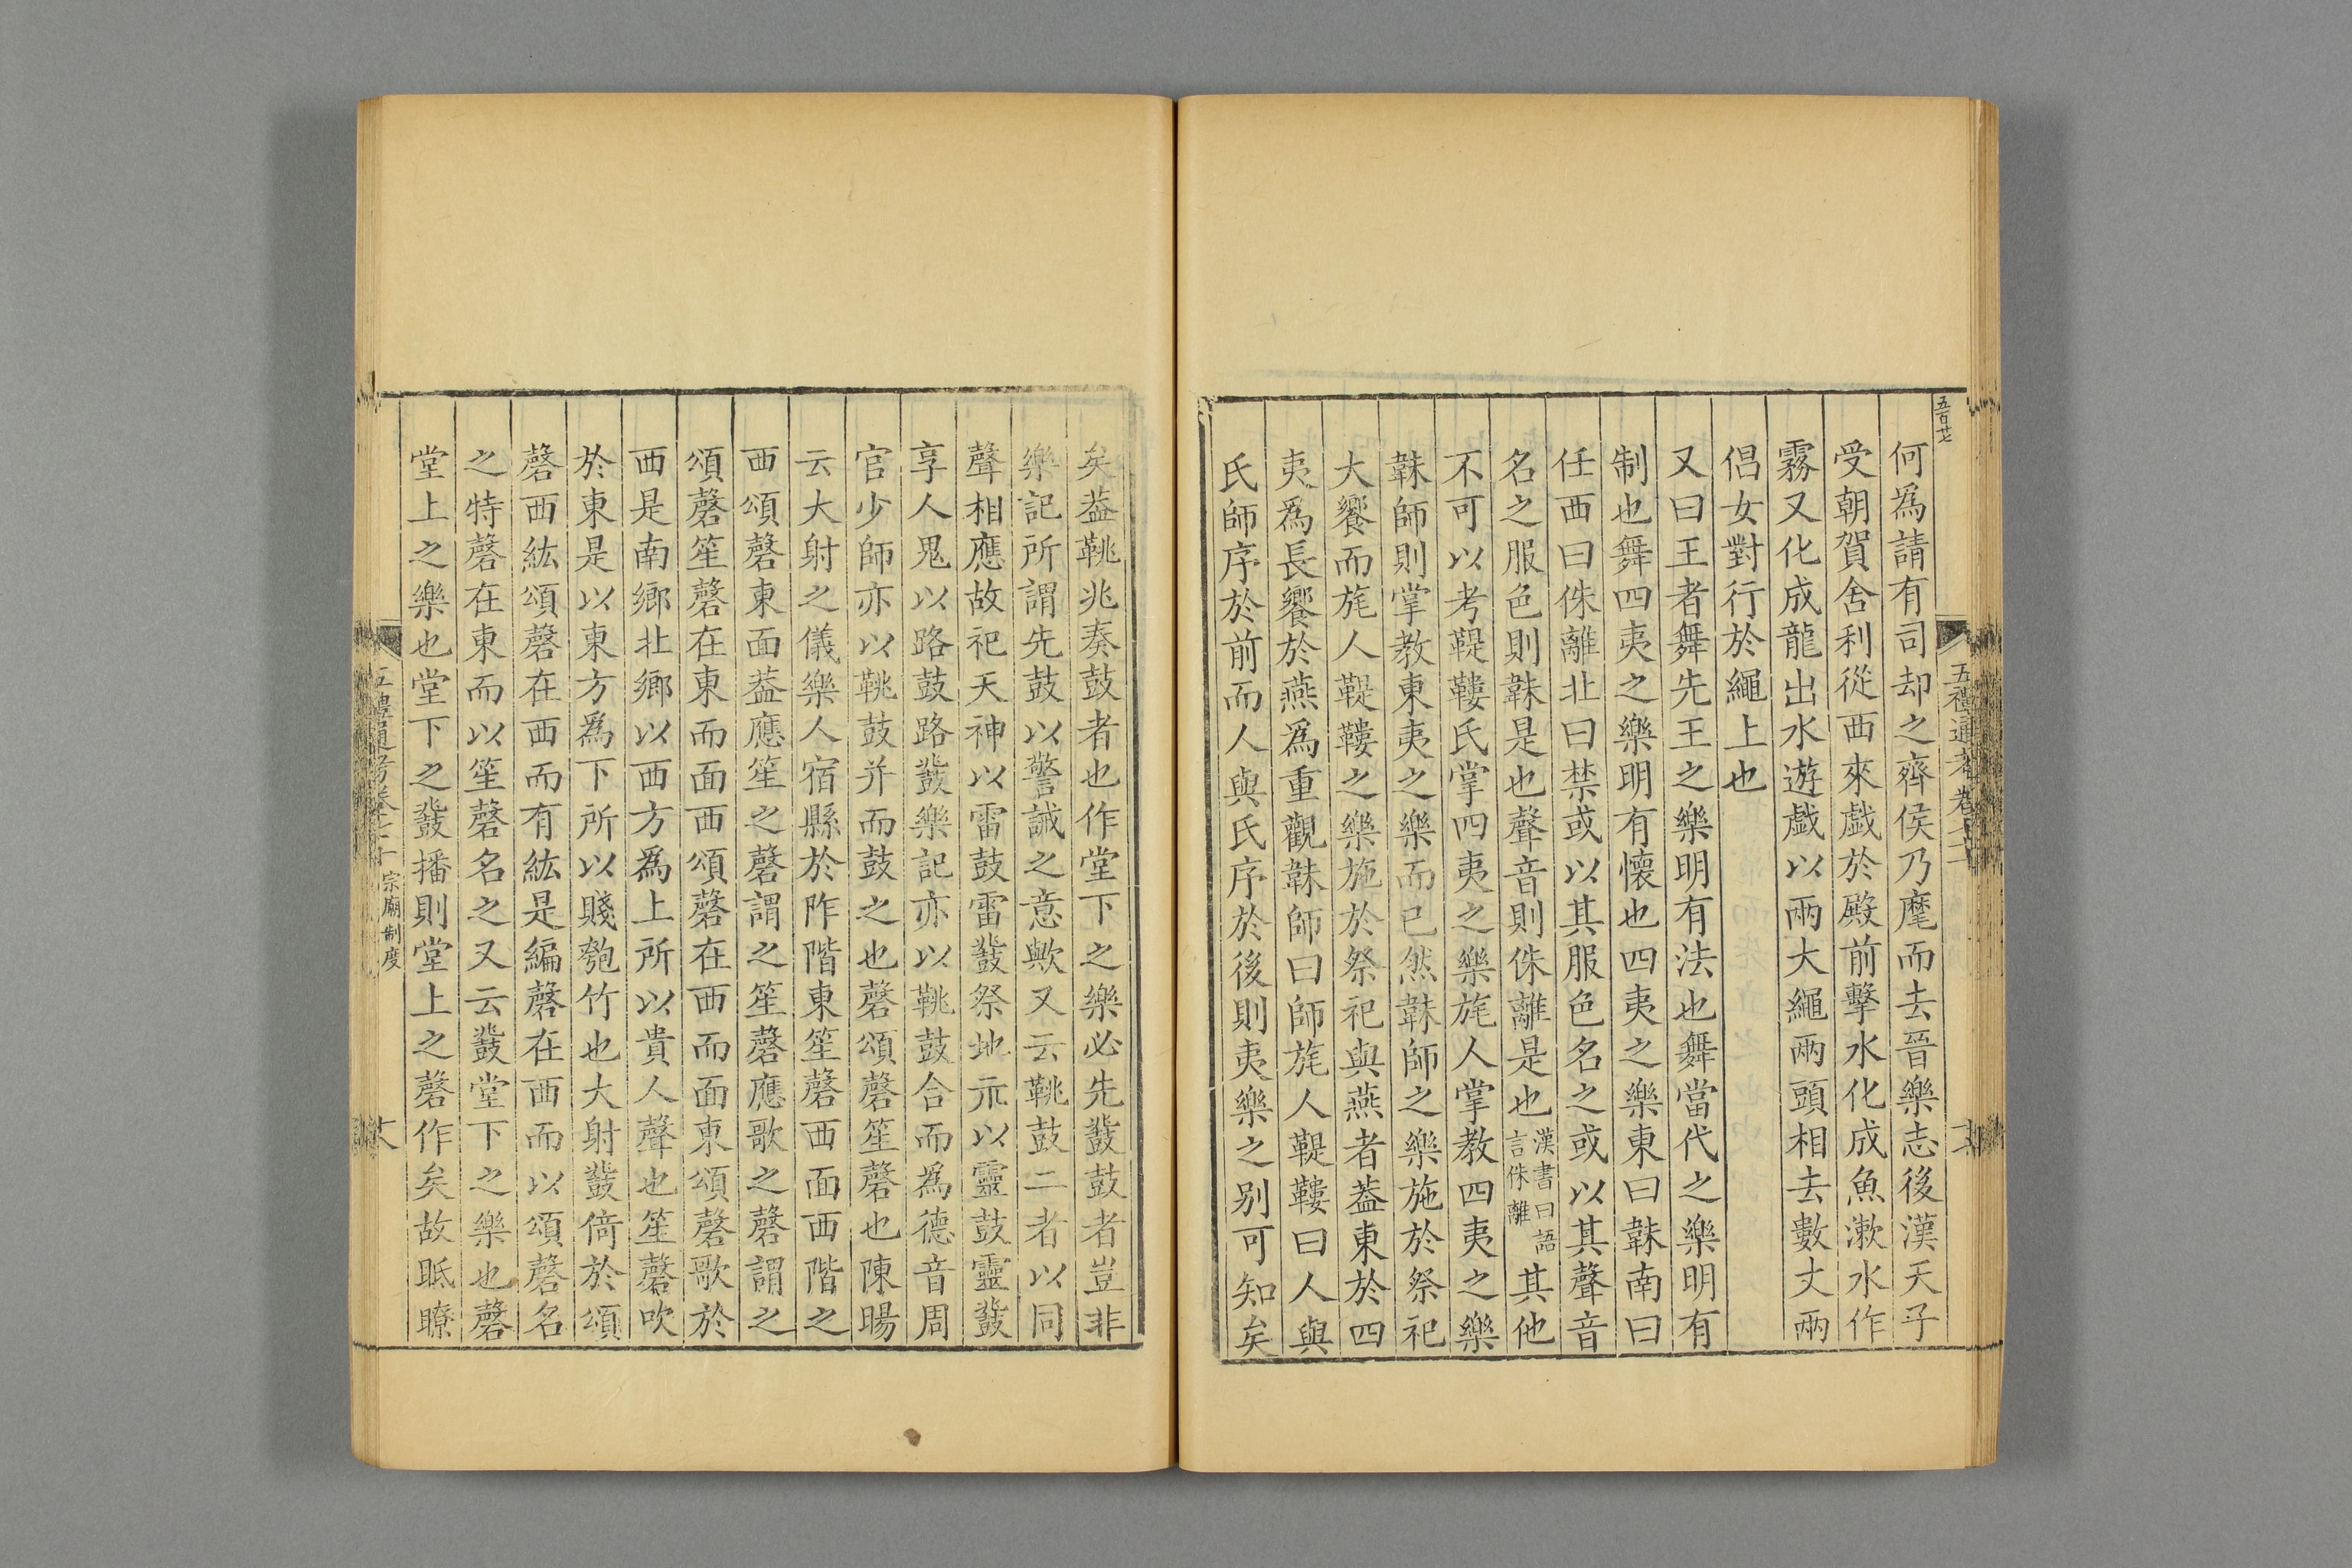 五百廿七
何爲請有司却之齊侯乃麾而去晉樂志後漢天子
受朝賀舍利從西來戲於殿前擊水化成魚潄水作
霧又化成龍出水遊戲以兩大繩兩頭相去數丈兩
倡女對行於繩上也
又曰王者舞先王之樂明有法也舞當代之樂明有
制也舞四夷之樂明有懷也四夷之樂東曰韎南曰
任西曰侏離北曰禁或以其服色名之或以其聲音
名之服色則韎是也聲音則侏離是也漢書曰語言侏離其他
不可以考鞮鞻氏掌四夷之樂旄人掌教四夷之樂
韎師則掌教東夷之樂而已然韎師之樂施於祭祀
大饗而旄人鞮鞻之樂施於祭祀與燕者葢東於四
夷爲長饗於燕爲重觀韎師曰師旄人鞮鞻曰人與
氏師序於前而人與氏序於後則夷樂之别可知矣
五禮通考卷
矣葢鞉兆奏鼓者也作堂下之樂必先鼗鼓者豈非
樂記所謂先鼓以警誡之意歟又云鞉鼓二者以同
聲相應故祀天神以雷鼓雷鼗祭地示以靈鼓靈鼗
享人鬼以路鼓路鼗樂記亦以鞉鼓合而爲德音周
官少師亦以鞉鼓并而鼓之也磬頌磬笙磬也陳暘
云大射之儀樂人宿縣於阼階東笙磬西面西階之
西頌磬東面葢應笙之磬謂之笙磬應歌之磬謂之
頌磬笙磬在東而面西頌磬在西而面東頌磬歌於
西是南鄉北鄉以西方爲上所以貴人聲也笙磬吹
於東是以東方爲下所以賤匏竹也大射鼗倚於頌
磬西紘頌磬在西而有紘是編磬在西而以頌磬名
之特磬在東而以笙磬名之又云鼗堂下之樂也磬
堂上之樂也堂下之鼗播則堂上之磬作矣故眡瞭
五禮通考卷 宗廟制度